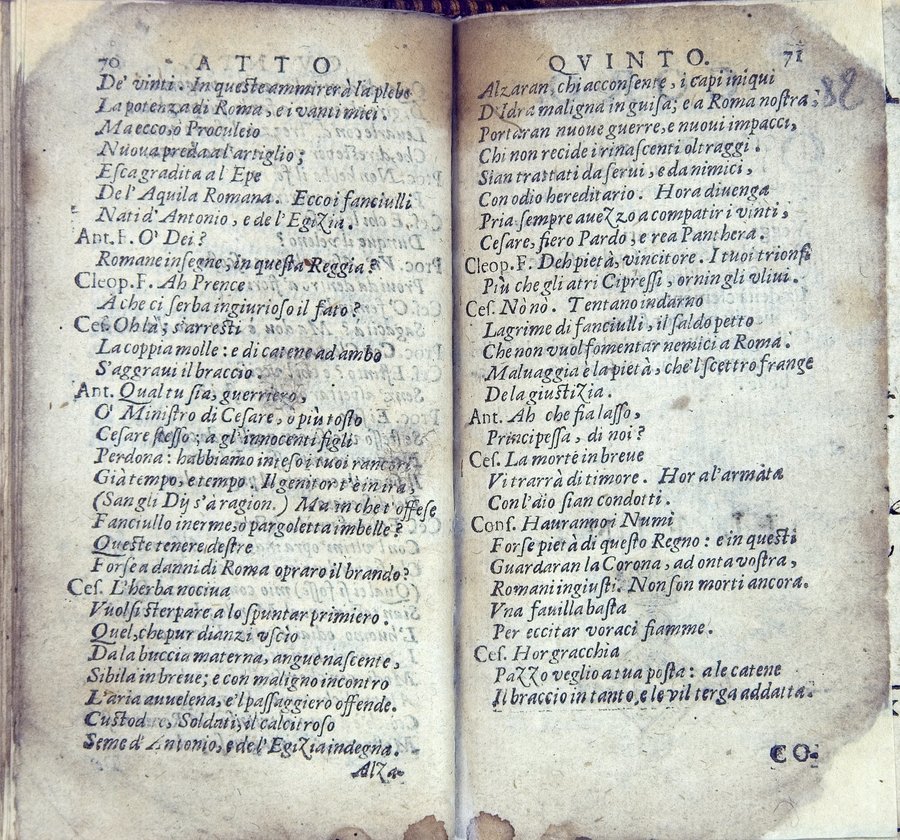 70 ATTO
De' vinti. In queste ammirerà la plebe
La potenza di Roma, e i vanti miei.
Ma ecco, ò Proculeio
Nuova preda al'artiglio;
Esca gradita al Epe
De l'Aquila Romana. Ecco i fanciulli
Nati d'Antonio, e de l'Egizia.
Ant. F. O' Dei?
Romane insegne, in questa Reggia?
Cleop. F. Ah Prence
A che ci serba ingiurioso il fato?
Ces. Ohlà; s'arresti
La coppia molle: e di catene ad ambo
S'aggravi il braccio.
Ant. Qual tu sia, guerriero,
O' Ministro di Cesare, o più tosto
Cesare stesso; a gl'innocenti figli
Perdona: habbiamo inteso i tuoi rancori
Già tempo, e tempo. Il genitor t'è in ira,
(San gli Dij s'à ragion.) Ma in che t'offese
Fanciullo inerme, o pargoletta imbelle?
Queste tenere destre
Forse a danni di Roma opraro il brando?
Ces. L'herba nociva
Vuolsi sterpare a lo spuntar primiero.
Quel, che pur dianzi uscìo
Da la buccia materna, angue nascente,
Sibila in breve; e con maligno incontro
L'aria avvelena, e'l passaggiero offende.
Custodite, Soldati, il calcitroso
Seme d'Antonio, e de l'Egizia indegna.
Alza-
QVINTO. 71
88
Alzaran, chi acconsente, i capi iniqui
D'Idra maligna in guisa; e a Roma nostra,
Portaran nuove guerre, e nuovi impacci,
Chi non recide i rinascenti oltraggi.
Sian trattati da servi, e da nimici,
Con odio hereditario. Hora divenga
Pria sempre avezzo a compatir i vinti,
Cesare, fiero Pardo, e rea Panthera.
Cleop. F. Deh pietà, vincitore. I tuoi trionfi
Più che gli atri Cipressi, ornin gli vlivi.
Ces. Nò nò. Tentano indarno
Lagrime di fanciulli, il saldo petto
Che non vuol fomentar nemici a Roma.
Malvaggia è la pietà, che'l scettro frange
De la giustizia.
Ant. Ah che fia lasso,
Principessa, di noi?
Ces. La morte in breve
Vi trarrà di timore. Hor al'armata
Con l'aio sian condotti.
Cons. Hauranno i Numi
Forse pietà di questo Regno: e in questi
Guardaran la Corona, ad onta vostra,
Romani ingiusti. Non son morti ancora.
Vna favilla basta
Per eccitar voraci fiamme.
Ces. Hor gracchia
Pazzo veglio a tua posta: a le catene
Il braccio in tanto, e le vil terga addatta.
CO-